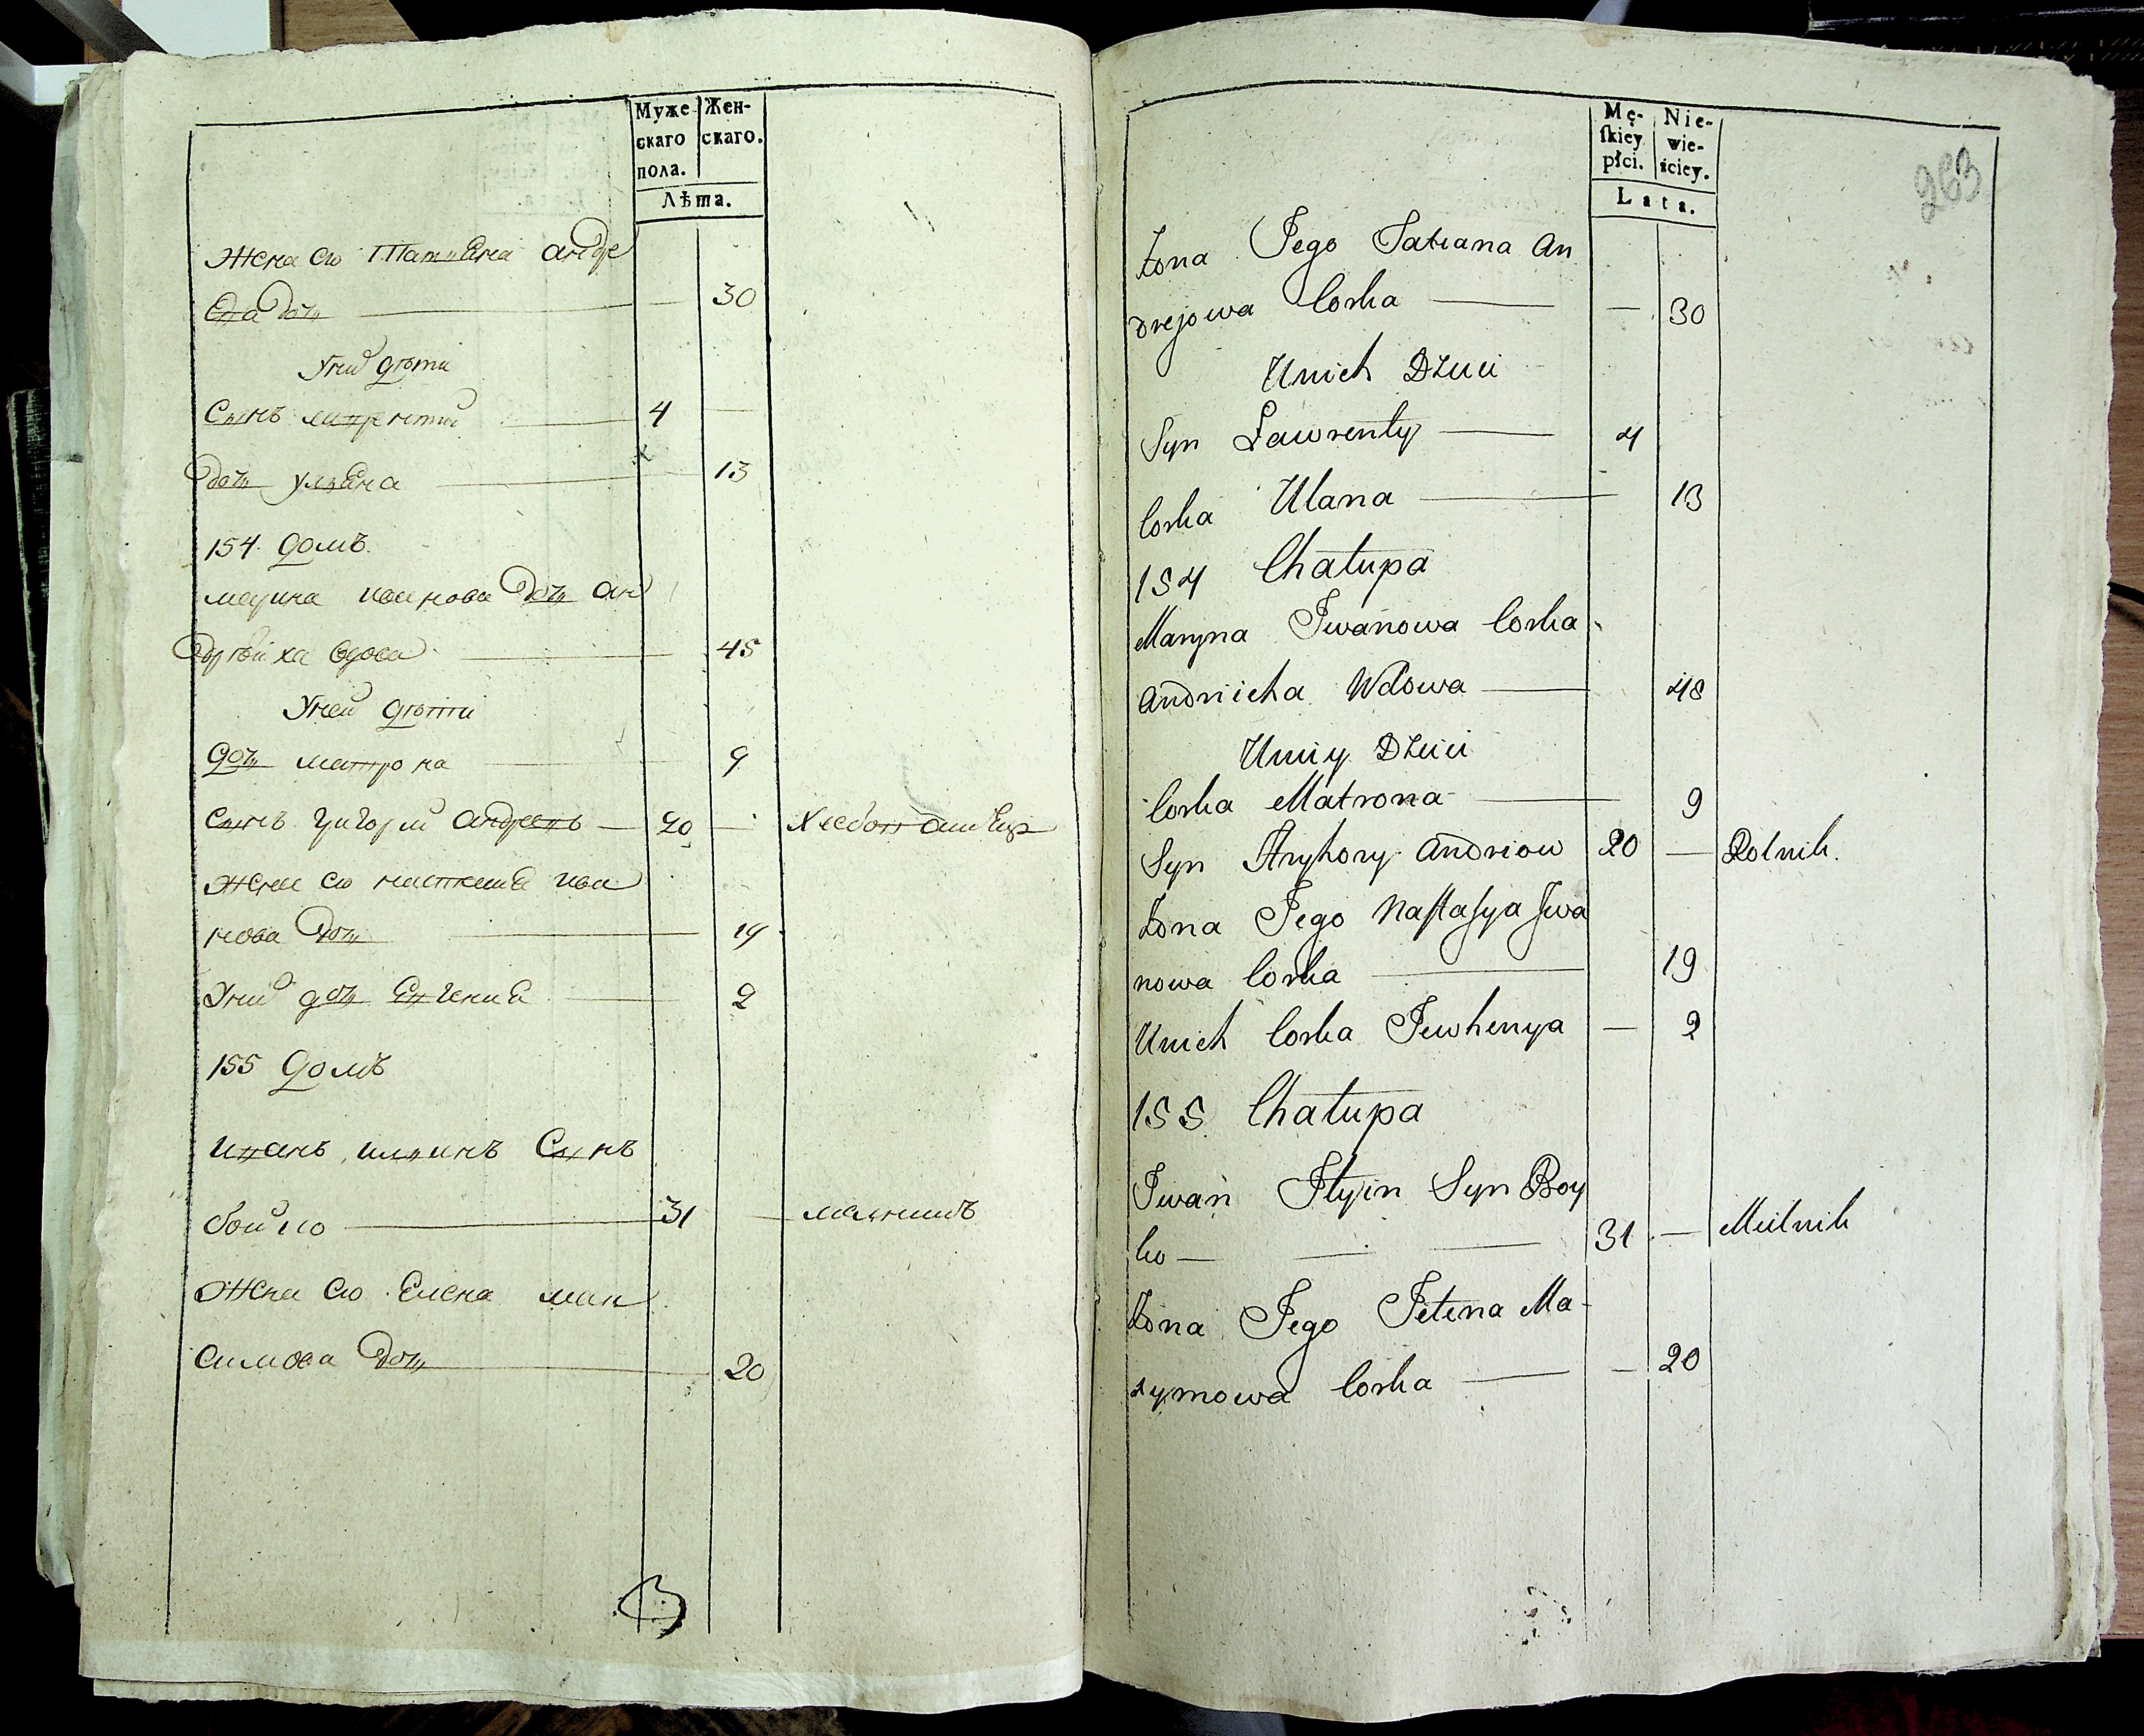 Муже-
скаго
пола.
Жен-
скаго.
Лѣта.
Жена его Татиана андре
ева дочь 30
У них дѣти
Сынъ лаврентий 4
дочь улиана 13
154 домъ
марина иванова дочь ан
дрѣиха вдова 48
У ней дѣти
дочь матрона 9
Сынъ григорий андреевъ 20 Хлебопашецъ
Жена его настасиа ива
нова дочь 19
У них дочь Евгениа 2
155 домъ
иванъ илиинъ Сынъ
бойко 31 мелникъ
Жена его Елена мак
симова дочь 20
Mę-
ſkiey
płci.
Nie-
wie-
ściey.
Lata.
263
Żona Jego Tatiana An
drejowa Corka — 30
Unich Dzieci
Syn Ławrenty 4
Corka Ulana 13
154 Chałupa
Maryna Iwanowa Corka
Andriicha Wdowa 48
Uniy Dzieci
Corka Matrona 9
Syn Hryhory Andriow 20 — Rolnik.
Żona Jego Naſtaſya Iwa
nowa Corka 19
Unich Corka Jewhenya — 2
155 Chałupa
Iwan Ilyin Syn Boy
ko 31 — Mielnik
Żona Jego Jelena Ma-
xymowa Corka — 20